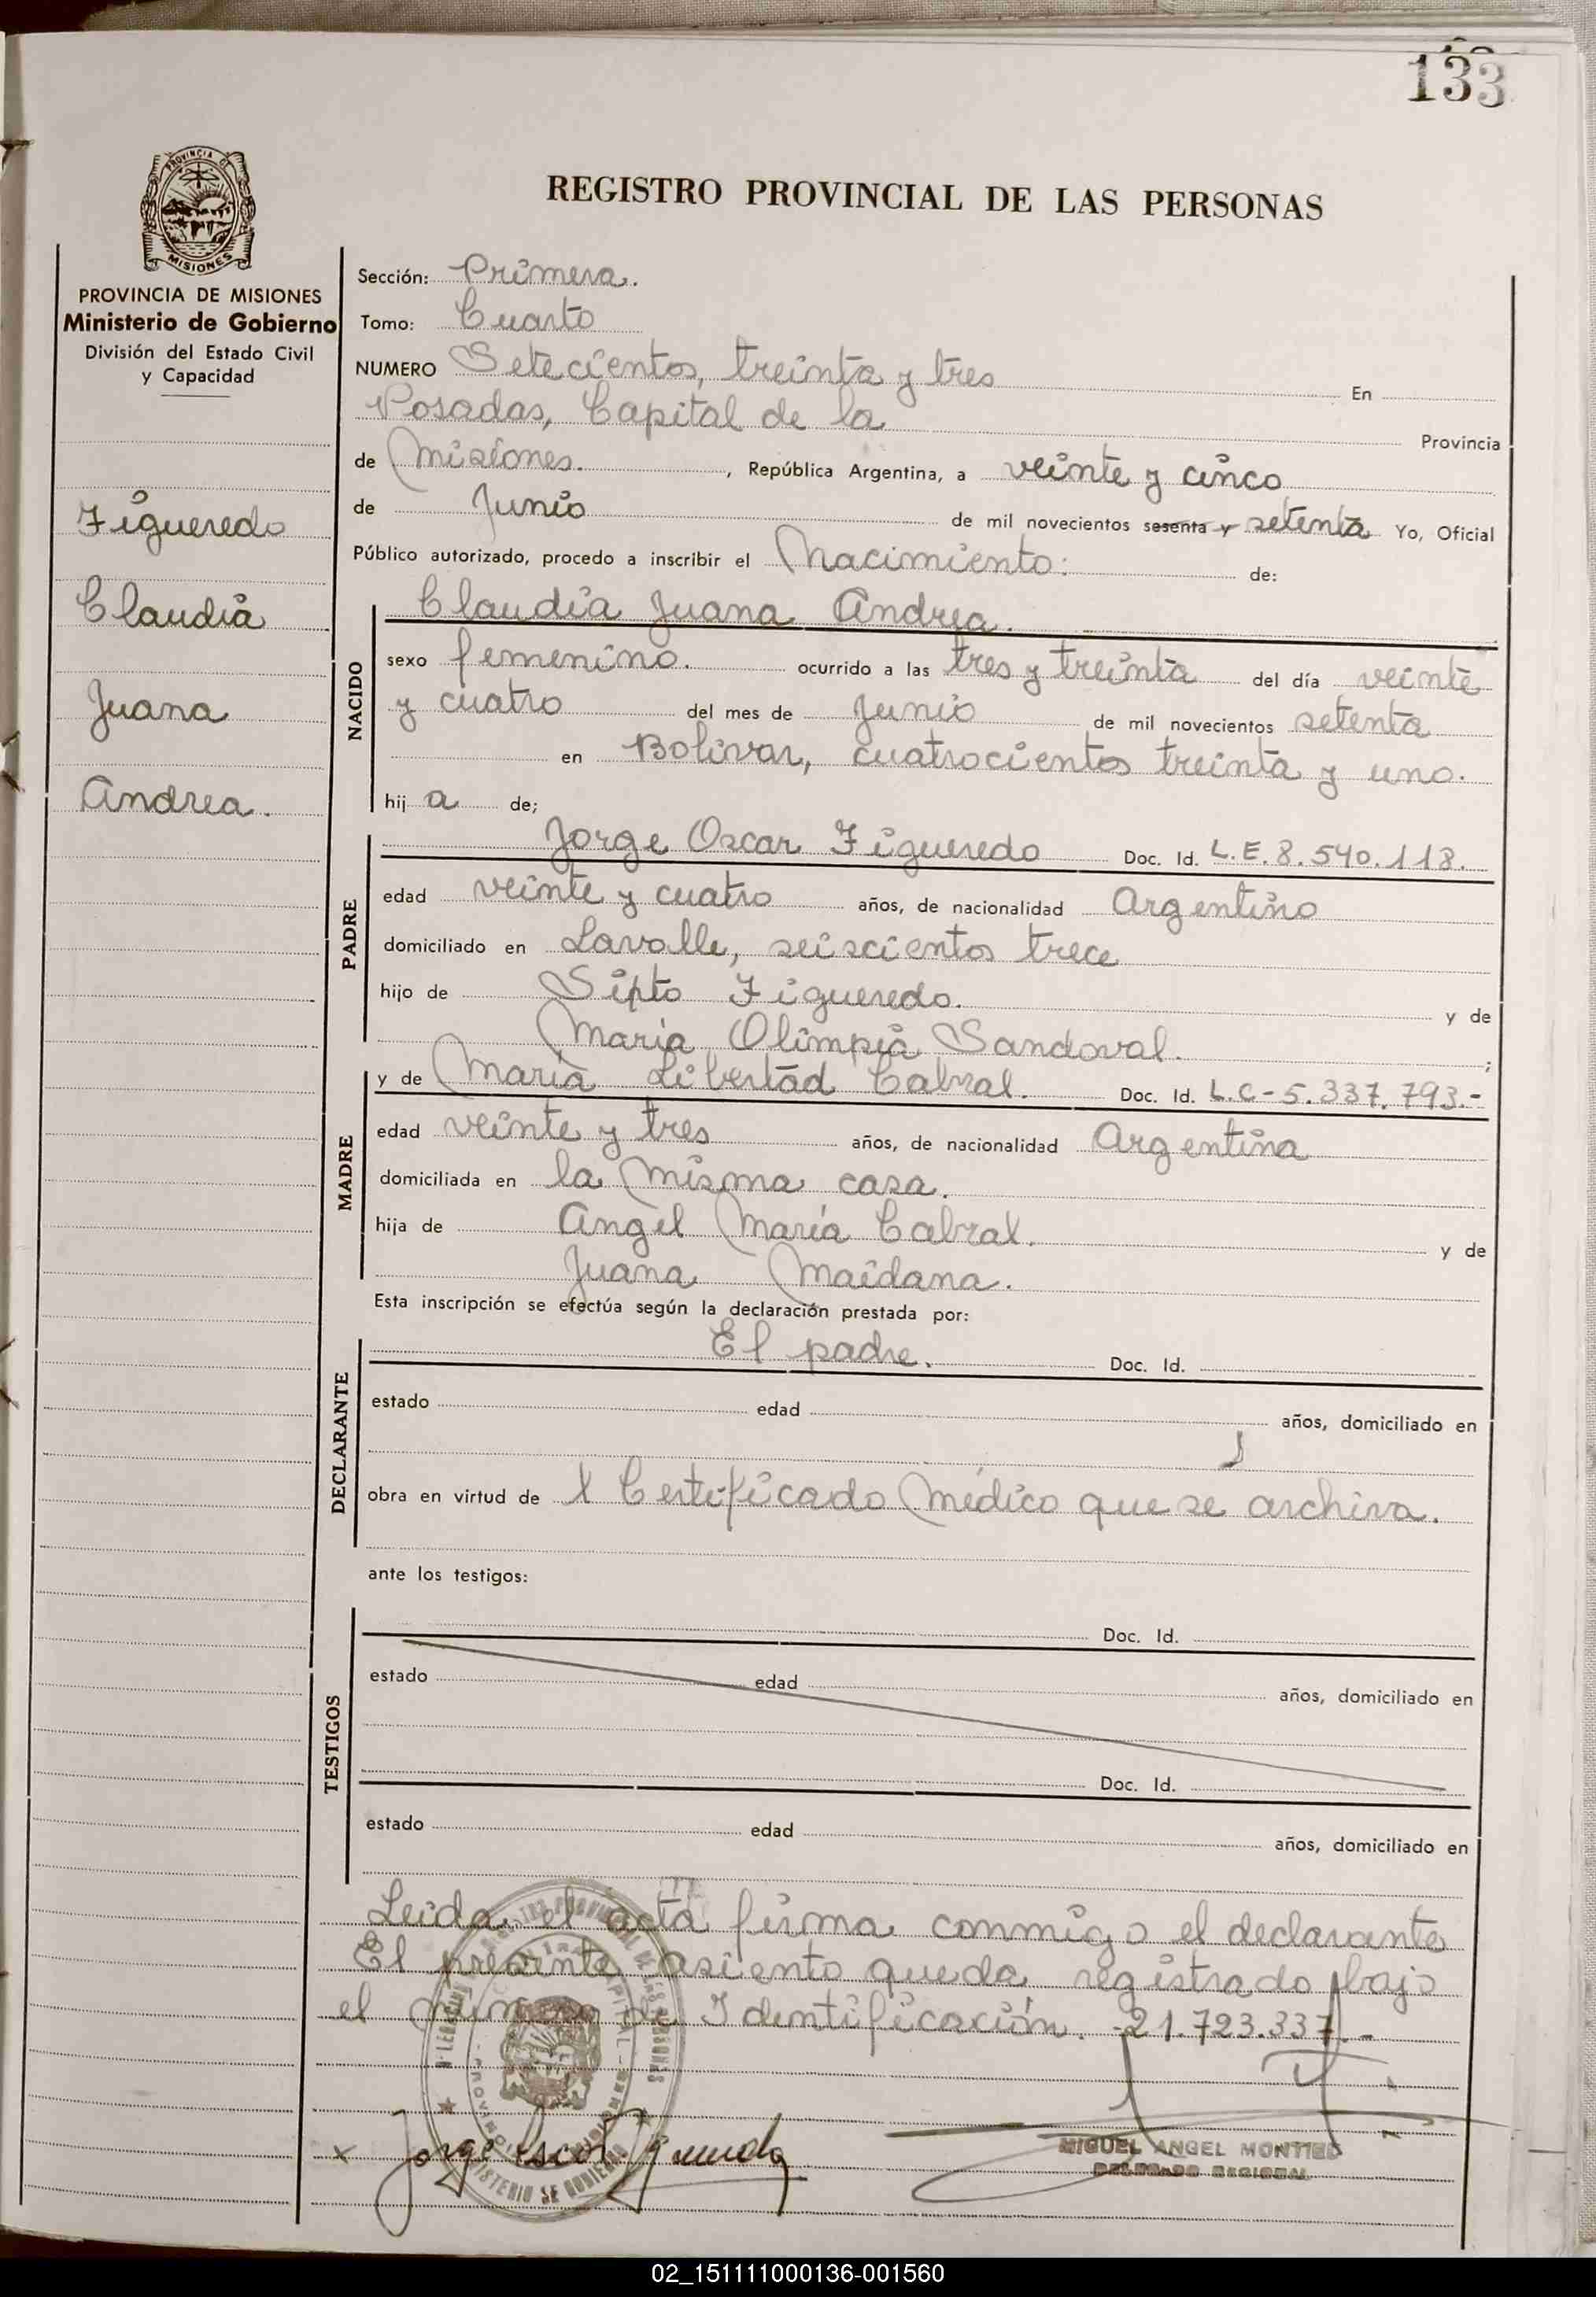 133
PROVINCIA DE
MISIONES
REGISTRO PROVINCIAL DE LAS PERSONAS
PROVINCIA DE MISIONES
Ministerio de Gobierno
División del Estado Civil
y Capacidad
Figueredo
Claudia
Juana
Andrea.
Sección: Primera.
Tomo: Cuarto
NUMERO Setecientos, treinta y tres En
Posadas, Capital de la Provincia
de Misiones. , República Argentina, a veinte y cinco
de Junio de mil novecientos sesenta y setenta Yo, Oficial
Público autorizado, procedo a inscribir el Nacimiento: de:
NACIDO
Claudia Juana Andrea.
sexo femenino. ocurrido a las tres y treinta del día veinte
y cuatro del mes de Junio de mil novecientos setenta
en Bolivar, cuatrocientos treinta y uno.
hij a de;
PADRE
Jorge Oscar Figueredo Doc. Id. L.E. 8.540.118.
edad veinte y cuatro años, de nacionalidad Argentino
domiciliado en Lavalle, seiscientos trece
hijo de Sipto Figueredo. y de
María Olimpia Sandoval. ;
MADRE
y de María Libertad Cabral. Doc. Id. L.C-5.337.793.-
edad veinte y tres años, de nacionalidad Argentina
domiciliada en la misma casa.
hija de Angel María Cabral. y de
Juana Maidana.
Esta inscripción se efectúa según la declaración prestada por:
DECLARANTE
El padre. Doc. Id.
estado edad años, domiciliado en
obra en virtud de l Certificado Médico que se archiva.
ante los testigos:
TESTIGOS
Doc. Id.
estado edad años, domiciliado en
Doc. Id.
estado edad años, domiciliado en
Leida el acta firma conmigo el declarante
El presente asiento queda registrado bajo
el numero de Identificación. 21.723.337.-
x Jorge Oscar Figueredo
MIGUEL ANGEL MONTIEL
DELEGADO REGIONAL
02_151111000136-001560